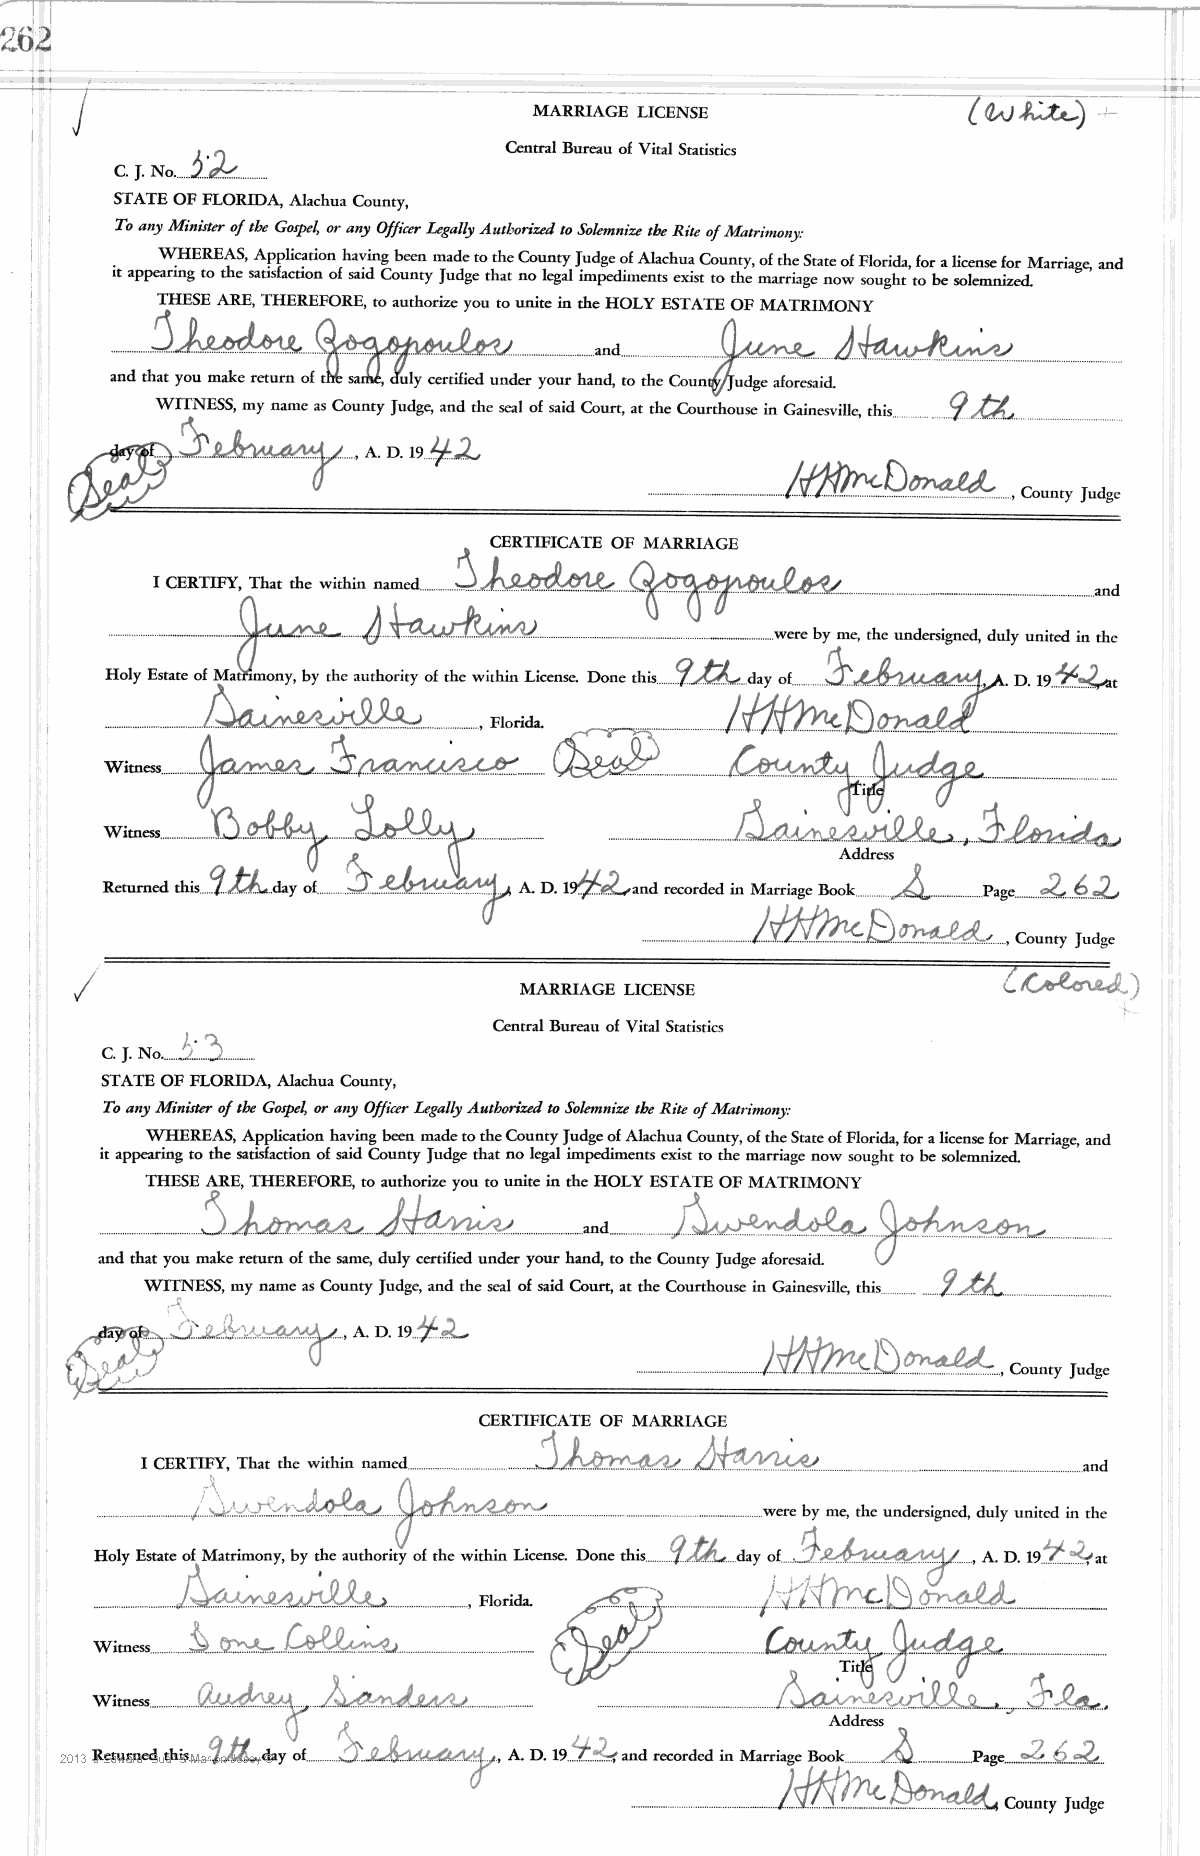 262
MARRIAGE LICENSE (White) +
Central Bureau of Vital Statistics
C. J. No. 52
STATE OF FLORIDA, Alachua County,
To any Minister of the Gospel, or any Officer Legally Authorized to Solemnize the Rite of Matrimony:
WHEREAS, Application having been made to the County Judge of Alachua County, of the State of Florida, for a license for Marriage, and
it appearing to the satisfaction of said County Judge that no legal impediments exist to the marriage now sought to be solemnized.
THESE ARE, THEREFORE, to authorize you to unite in the HOLY ESTATE OF MATRIMONY
Theodore Gogopoulos and June Hawkins
and that you make return of the same, duly certified under your hand, to the County Judge aforesaid.
WITNESS, my name as County Judge, and the seal of said Court, at the Courthouse in Gainesville, this 9th
day of February, A. D. 19 42
(Seal) HHMcDonald, County Judge
CERTIFICATE OF MARRIAGE
I CERTIFY, That the within named Theodore Gogopoulos and
June Hawkins were by me, the undersigned, duly united in the
Holy Estate of Matrimony, by the authority of the within License. Done this 9th day of February, A. D. 19 42, at
Gainesville, Florida. HHMcDonald
Witness James Francisco (Seal) County Judge
Title
Witness Bobby Lolly Gainesville, Florida
Address
Returned this 9th day of February, A. D. 19 42, and recorded in Marriage Book S Page 262
HHMcDonald, County Judge
MARRIAGE LICENSE (Colored) +
Central Bureau of Vital Statistics
C. J. No. 53
STATE OF FLORIDA, Alachua County,
To any Minister of the Gospel, or any Officer Legally Authorized to Solemnize the Rite of Matrimony:
WHEREAS, Application having been made to the County Judge of Alachua County, of the State of Florida, for a license for Marriage, and
it appearing to the satisfaction of said County Judge that no legal impediments exist to the marriage now sought to be solemnized.
THESE ARE, THEREFORE, to authorize you to unite in the HOLY ESTATE OF MATRIMONY
Thomas Harris and Gwendola Johnson
and that you make return of the same, duly certified under your hand, to the County Judge aforesaid.
WITNESS, my name as County Judge, and the seal of said Court, at the Courthouse in Gainesville, this 9th
day of February, A. D. 19 42
(Seal) HHMcDonald, County Judge
CERTIFICATE OF MARRIAGE
I CERTIFY, That the within named Thomas Harris and
Gwendola Johnson were by me, the undersigned, duly united in the
Holy Estate of Matrimony, by the authority of the within License. Done this 9th day of February, A. D. 19 42, at
Gainesville, Florida. HHMcDonald
Witness Done Collins (Seal) County Judge
Title
Witness Audrey Sanders Gainesville, Fla.
Address
2013
Returned this 9th day of February, A. D. 19 42, and recorded in Marriage Book S Page 262
HHMcDonald, County Judge